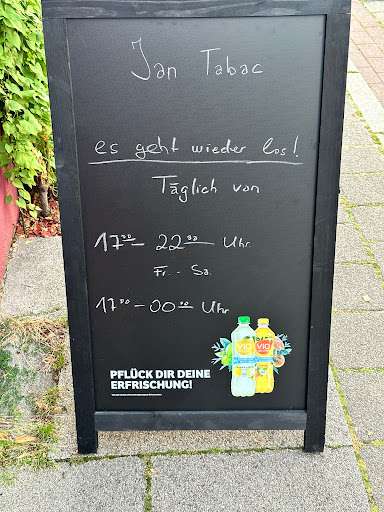 Jan Tabac
es geht wieder los!
Täglich von
17⁰⁰ - 22⁰⁰ Uhr
Fr. - Sa.
17⁰⁰ - 00⁰⁰ Uhr
PFLÜCK DIR DEINE
ERFRISCHUNG!
VIO VIO